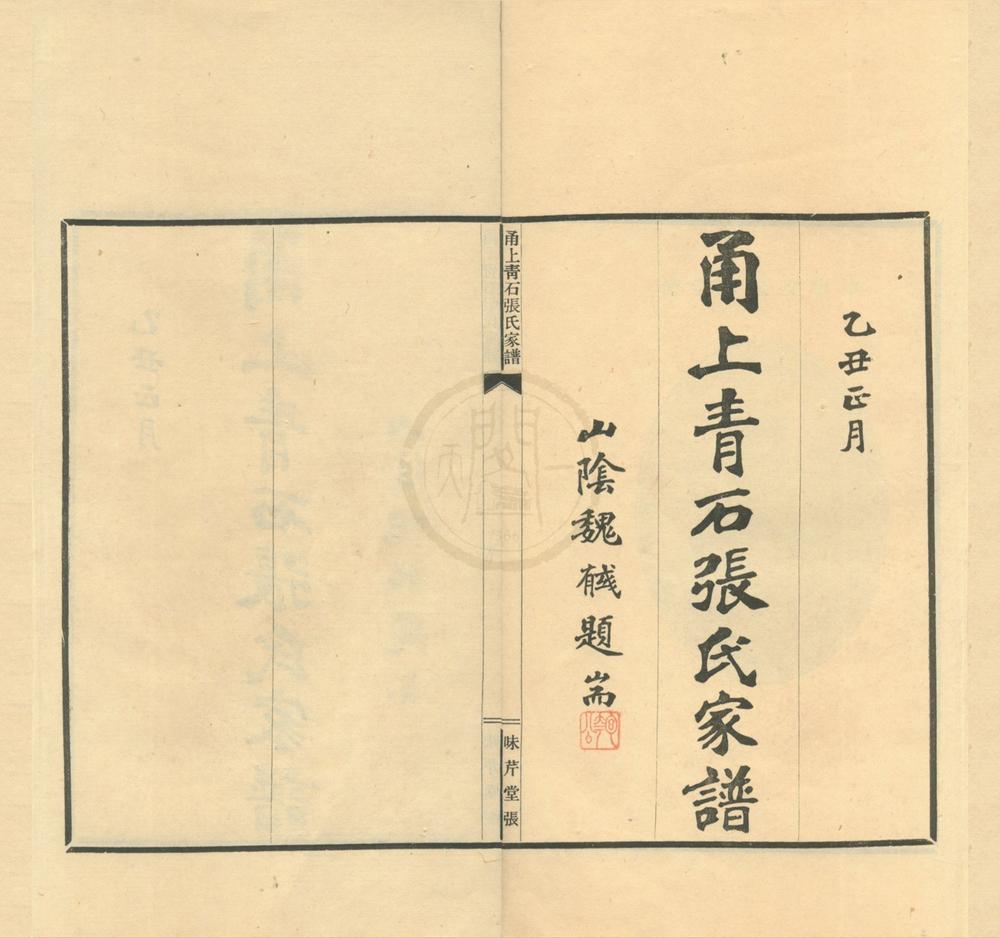 乙丑正月
甬上青石張氏家譜
山陰魏戫題耑
甬上青石張氏家譜
味芹堂張